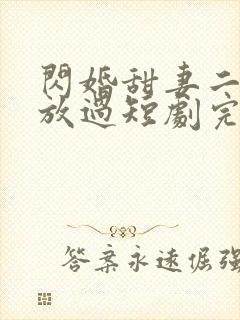 閃婚甜妻二
放過短劇完
答案永遠倔強